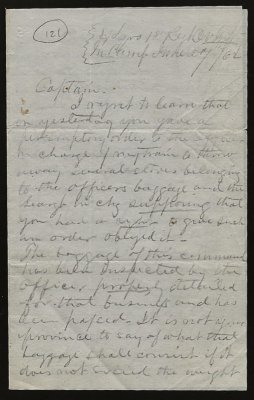 (12)
Captain.
I regret to learn that
on yesterday you gave a
peremptory order to the
in charge of my train to throw
away several stoves belonging
to the officers baggage and the
Sergt in chg supposing that
you had a right to give such
an order obeyed it—
The baggage of this command
has been inspected by the
officer properly detailed
for that business and has
been passed. It is not your
province to say of what that
baggage shall consist if it
does not exceed the weight